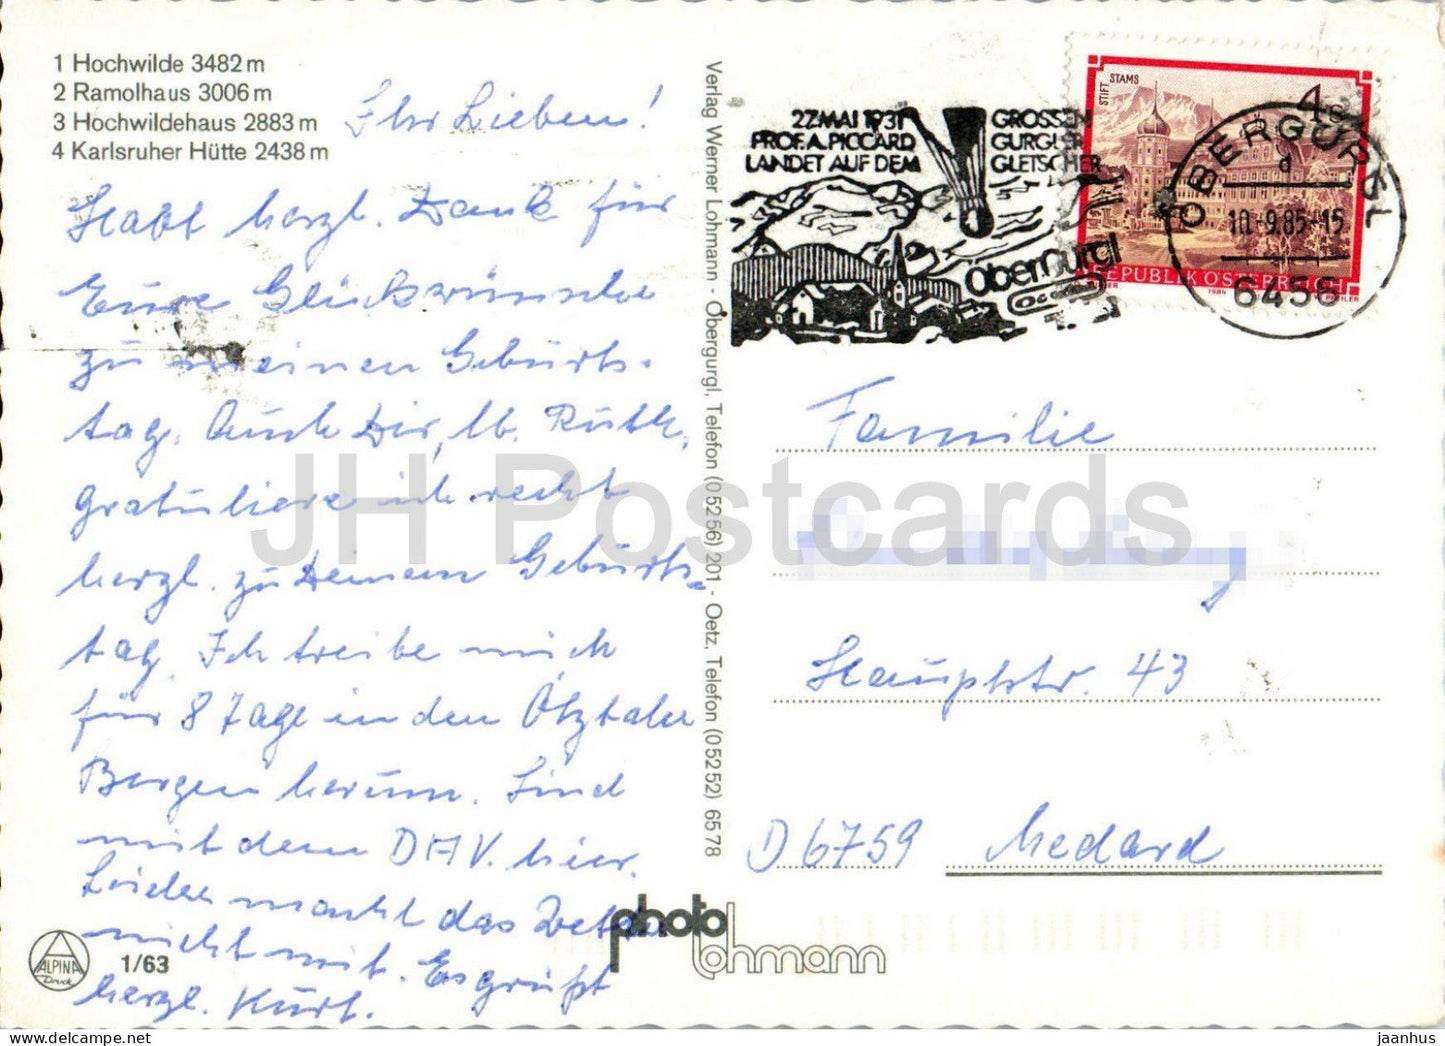 1 Hochwilde 3482 m
2 Ramolhaus 3006 m
3 Hochwildehaus 2883 m
4 Karlsruher Hütte 2438 m
Ihr Lieben!
Habt herzl. Dank für
Eure Glückwünsche
zu meinen Geburts-
tag. Auch Dir, lb. Ruth,
gratuliere ich recht
herzl. zu Deinem Geburts-
tag. Ich treibe mich
für 8 Tage in den Ötztaler
Bergen herum. Sind
mit dem DAV. hier.
Leider macht das Wetter
nicht mit. Es grüßt
herzl. Kurt.
ALPINA
Druck
1/63
Verlag Werner Lohmann - Obergurgl, Telefon (05256) 201 - Oetz, Telefon (05252) 6578
photo
lohmann
27. MAI 1931
PROF. A. PICCARD
LANDET AUF DEM
GROSSEN
GURGLER
GLETSCHER
Obergurgl
STIFT STAMS
4 S
REPUBLIK ÖSTERREICH
1984
OBERGURGL
d
10.-9.85-15
6456
Familie
Hauptstr. 43
D 6759 Medard
JH Postcards
jaanhus